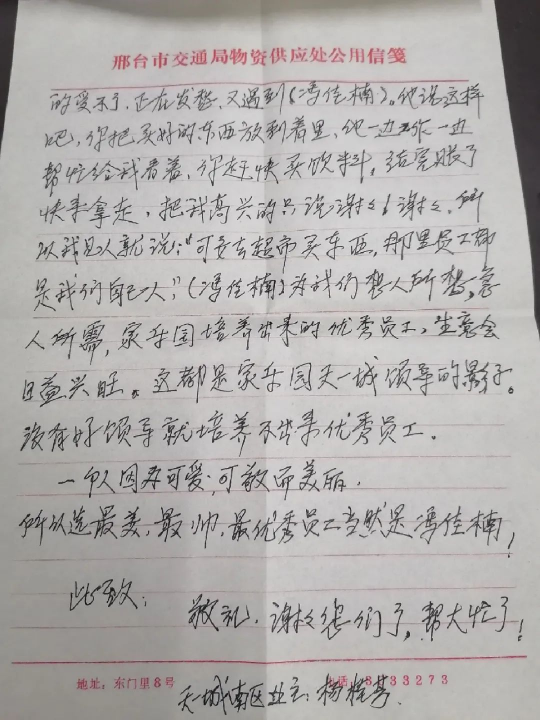 邢台市交通局物资供应处公用信笺
的受不了,正在发愁,又遇到(冯佳楠)。他说这样
吧,你把买好的东西放到着里,他一边工作一边
帮忙给我看着,你赶快买饮料,结完账了
快来拿走,把我高兴的只说谢谢!谢谢,所
以我见人就说:"可要去超市买东西,那里员工都
是我们自己人,"(冯佳楠)为我们想人所想,急
人所需,家乐园培养出来的优秀员工,生意会
日益兴旺。这都是家乐园天一城领导的影子。
没有好领导就培养不出来优秀员工。
一个人因为可爱,可敬而美丽.
所以选最美,最帅,最优秀员工当然是冯佳楠!
此致:
敬礼,谢谢您们了,帮大忙了!
地址:东门里8号 33273
天一城南区业主:杨桂芳.